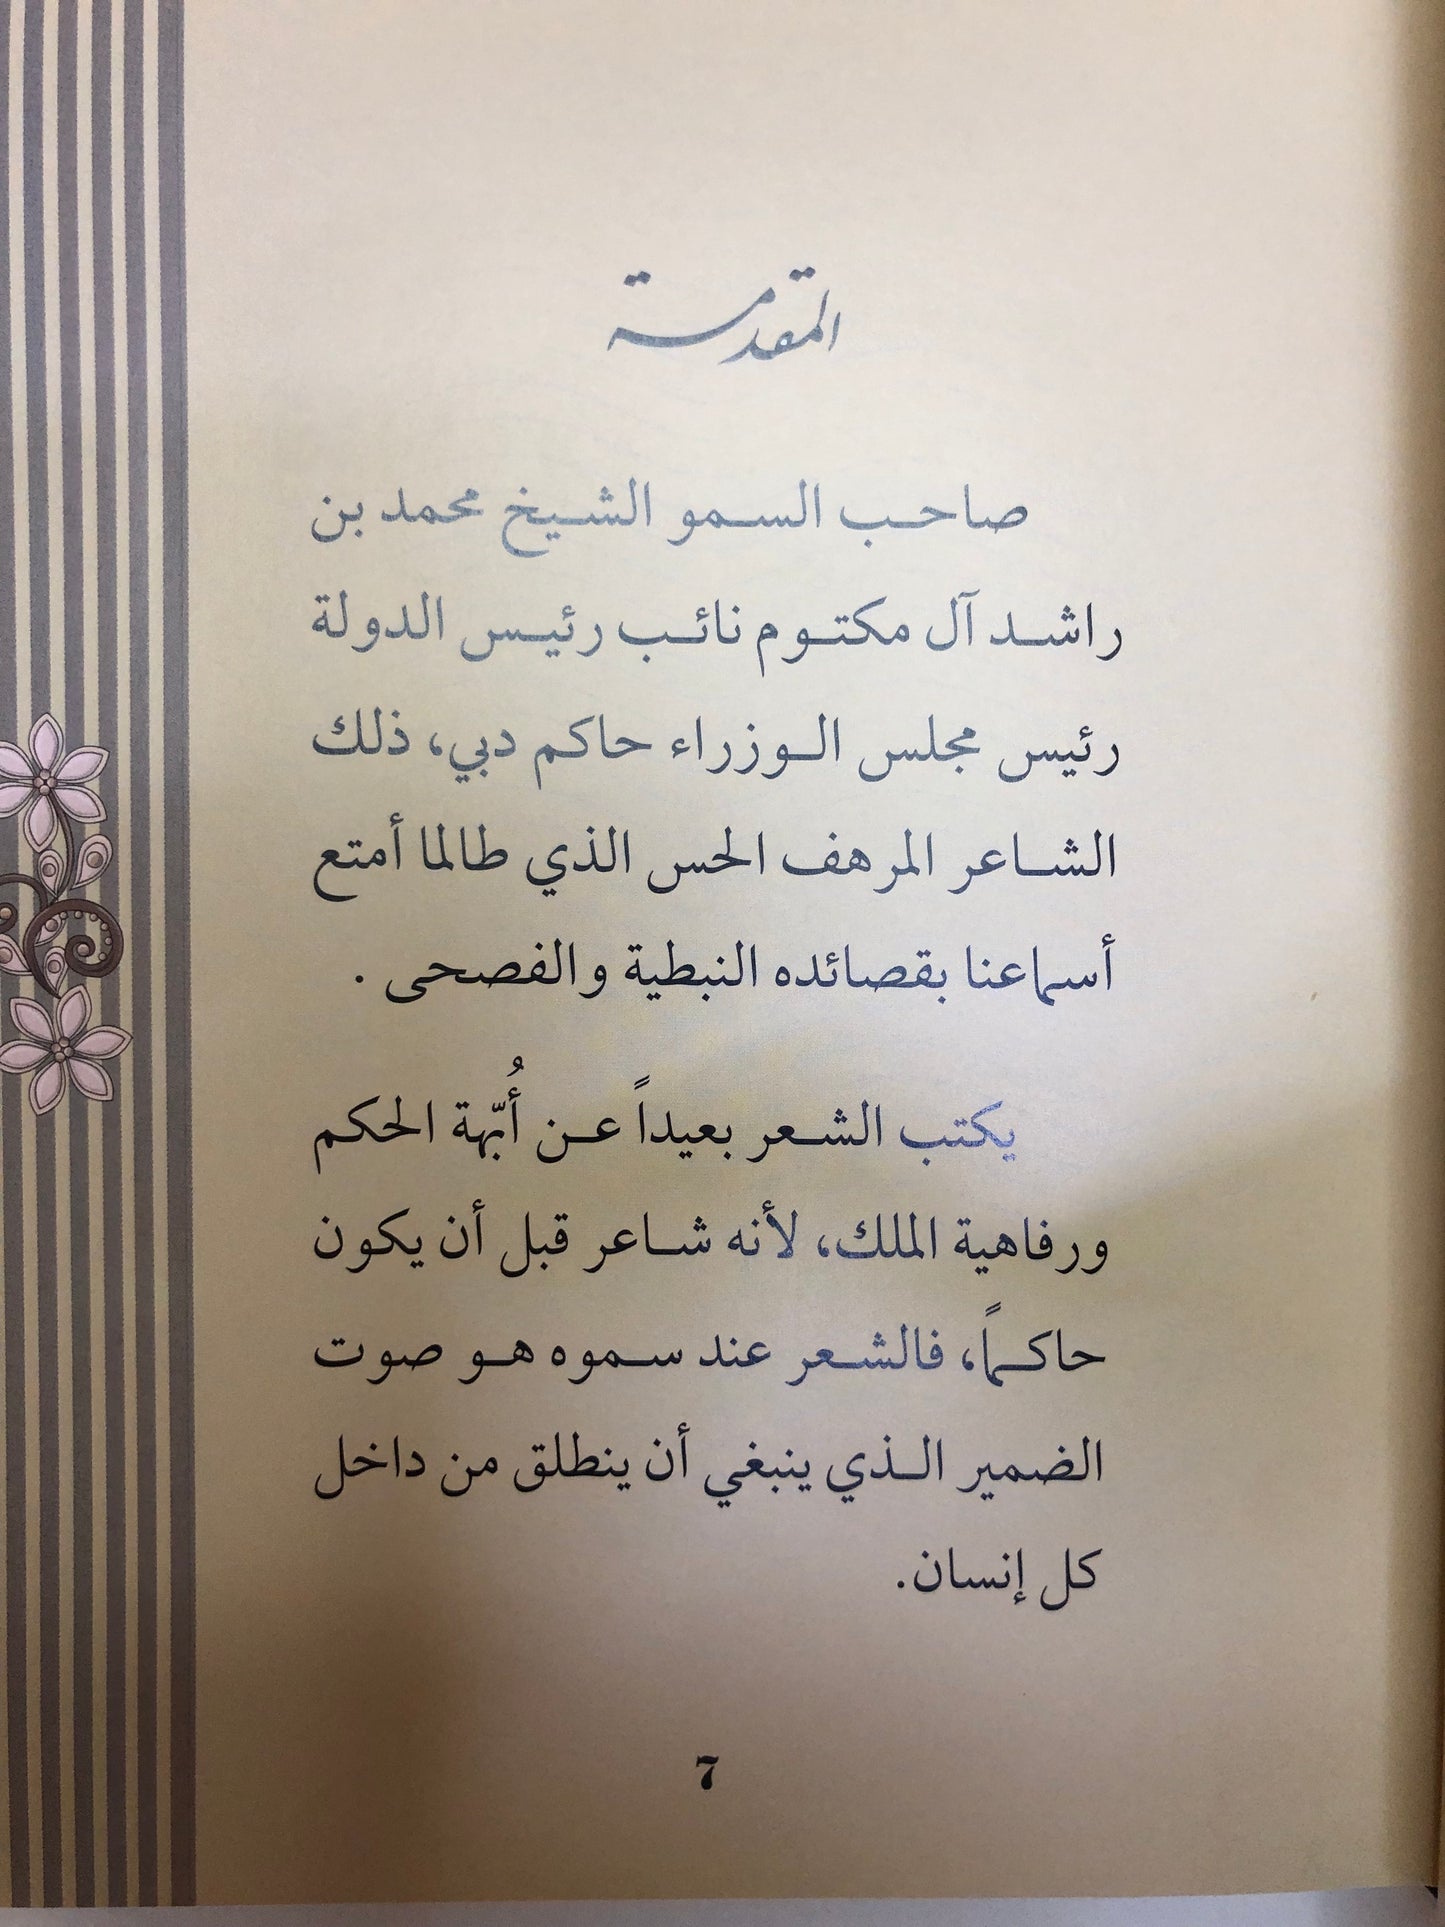 المقدمة
صاحب السمو الشيخ محمد بن
راشد آل مكتوم نائب رئيس الدولة
رئيس مجلس الوزراء حاكم دبي، ذلك
الشاعر المرهف الحس الذي طالما أمتع
أسماعنا بقصائده النبطية والفصحى .
يكتب الشعر بعيداً عن أُبّهة الحكم
ورفاهية الملك، لأنه شاعر قبل أن يكون
حاكماً، فالشعر عند سموه هو صوت
الضمير الذي ينبغي أن ينطلق من داخل
كل إنسان.
7